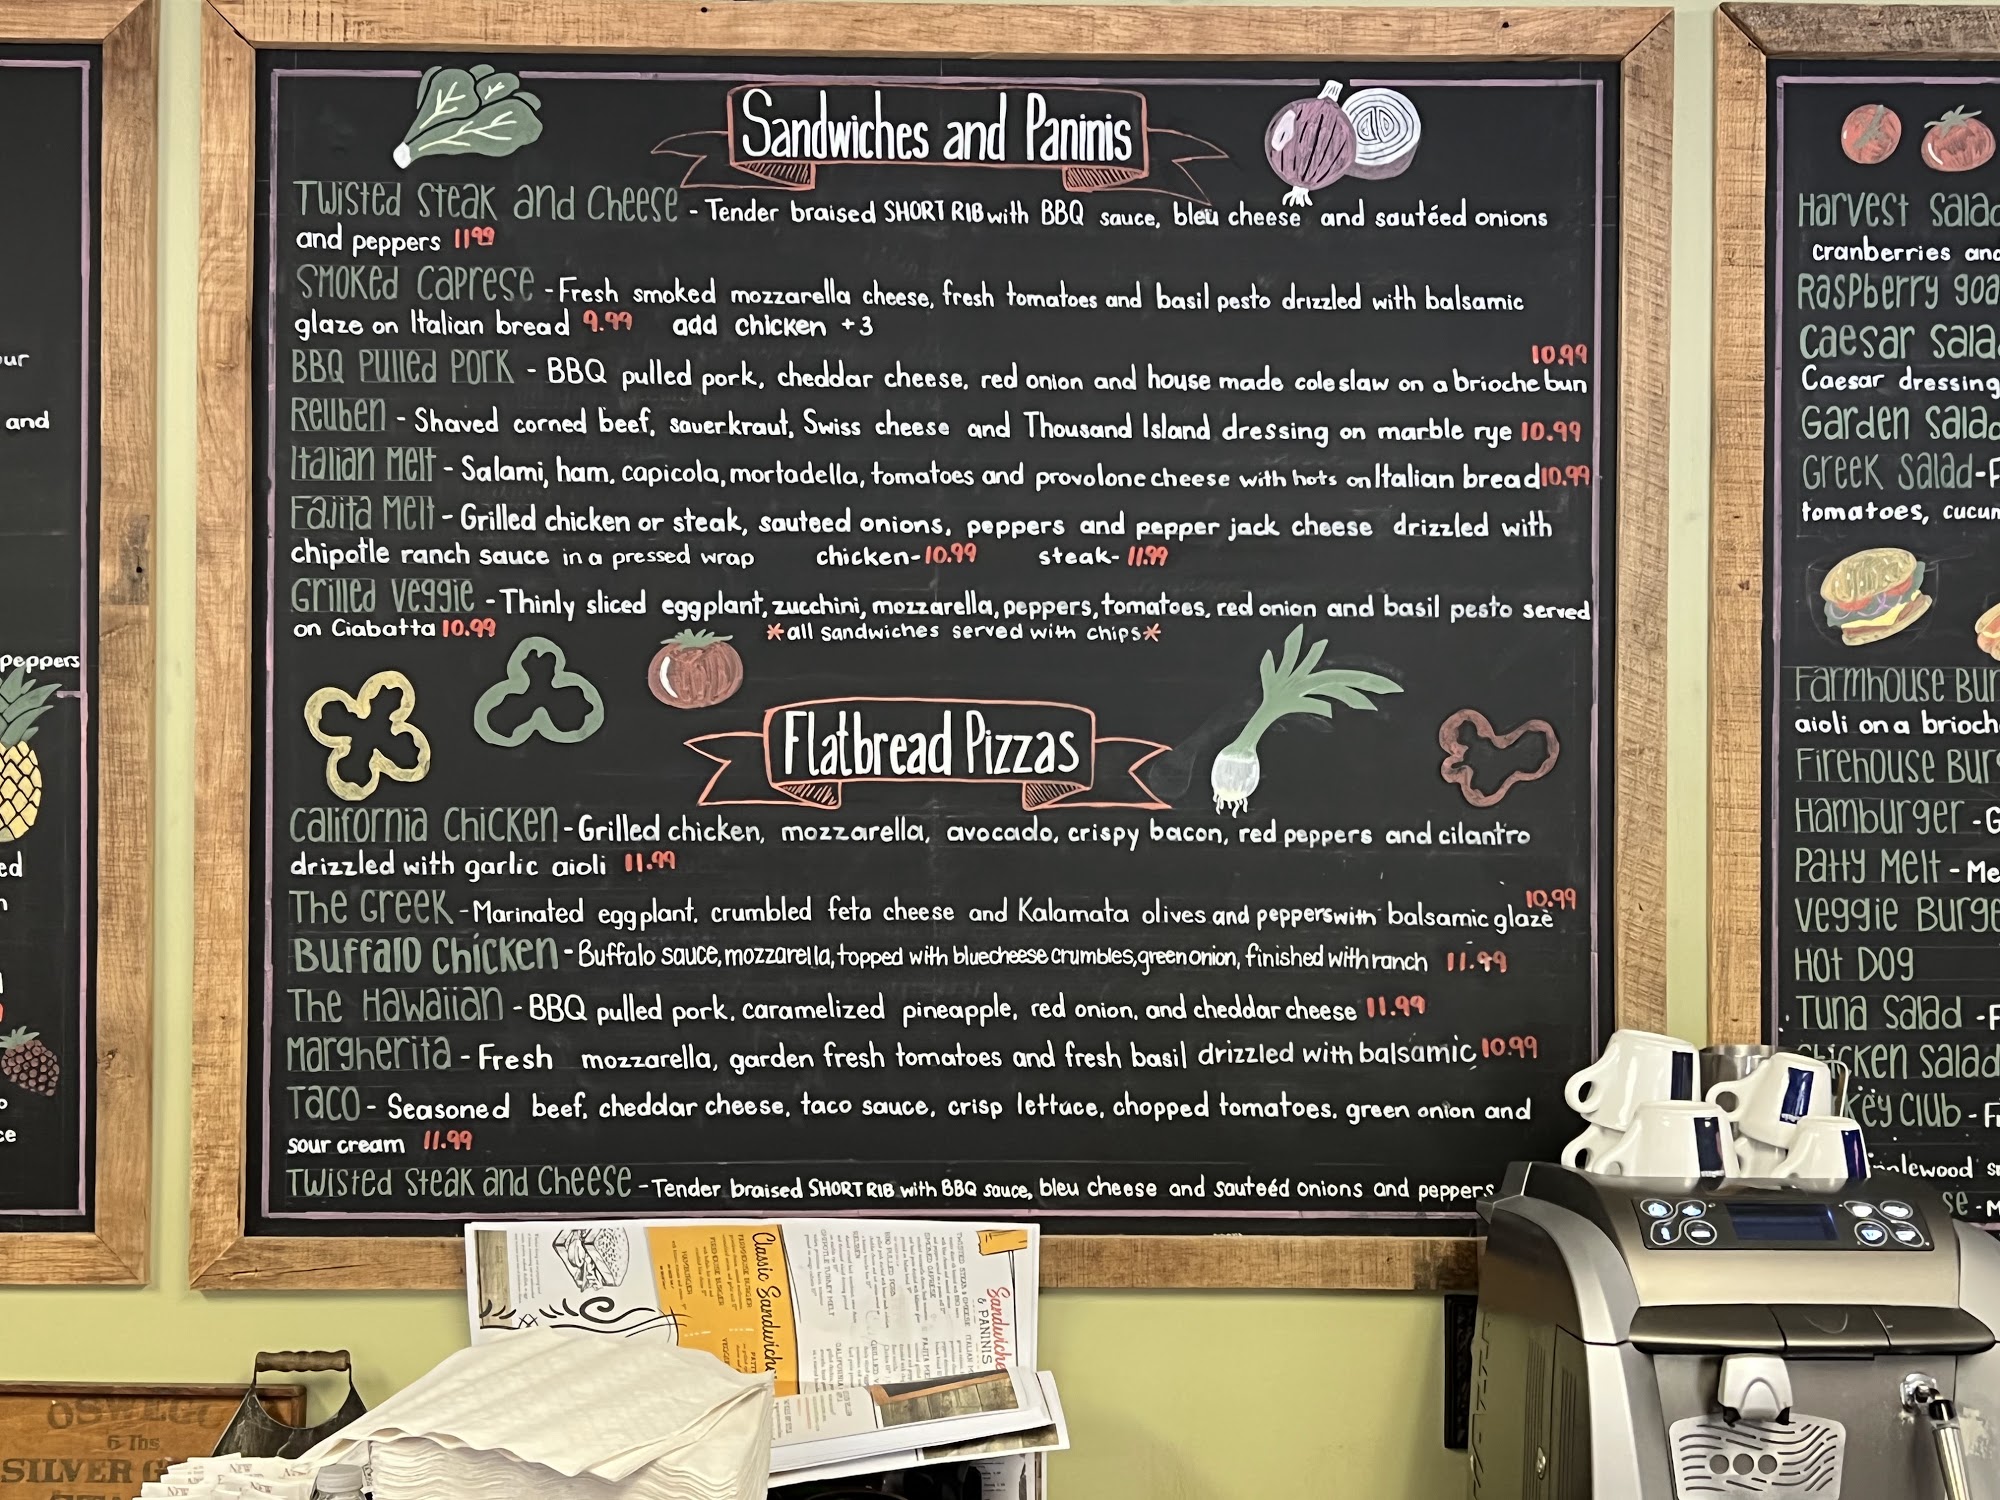 our
and
peppers
ed
ce
Sandwiches and Paninis
Twisted Steak and Cheese - Tender braised SHORT RIB with BBQ sauce, bleu cheese and sautéed onions
and peppers 11.99
Smoked Caprese - Fresh smoked mozzarella cheese, fresh tomatoes and basil pesto drizzled with balsamic
glaze on Italian bread 9.99 add chicken +3
10.99
BBQ Pulled Pork - BBQ pulled pork, cheddar cheese, red onion and house made coleslaw on a brioche bun
Reuben - Shaved corned beef, sauerkraut, Swiss cheese and Thousand Island dressing on marble rye 10.99
Italian Melt - Salami, ham, capicola, mortadella, tomatoes and provolone cheese with hots on Italian bread 10.99
Fajita Melt - Grilled chicken or steak, sauteed onions, peppers and pepper jack cheese drizzled with
chipotle ranch sauce in a pressed wrap chicken - 10.99 steak - 11.99
Grilled Veggie - Thinly sliced eggplant, zucchini, mozzarella, peppers, tomatoes, red onion and basil pesto served
on Ciabatta 10.99
*all sandwiches served with chips*
Flatbread Pizzas
California Chicken - Grilled chicken, mozzarella, avocado, crispy bacon, red peppers and cilantro
drizzled with garlic aioli 11.99
The Greek - Marinated eggplant, crumbled feta cheese and Kalamata olives and peppers with balsamic glaze 10.99
Buffalo Chicken - Buffalo sauce, mozzarella, topped with bluecheese crumbles, green onion, finished with ranch 11.99
The Hawaiian - BBQ pulled pork, caramelized pineapple, red onion, and cheddar cheese 11.99
Margherita - Fresh mozzarella, garden fresh tomatoes and fresh basil drizzled with balsamic 10.99
Taco - Seasoned beef, cheddar cheese, taco sauce, crisp lettuce, chopped tomatoes, green onion and
sour cream 11.99
Twisted Steak and Cheese - Tender braised SHORT RIB with BBQ sauce, bleu cheese and sauteéd onions and peppers
Harvest Salad
cranberries and
Raspberry goa
Caesar Sala
Caesar dressing
Garden Salad
Greek Salad - F
tomatoes, cucum
Farmhouse Bur
aioli on a brioch
Firehouse Bur
Hamburger - G
Patty Melt - Me
Veggie Burge
Hot Dog
Tuna Salad - F
Chicken Salad
key Club - Fr
applewood s
se - M
Classic Sandwich
FARMHOUSE BURGER
FIREHOUSE BURGER
HAMBURGER
Sandwiches
& PANINIS
OSWEGO
6 lbs
SILVER G
NEW